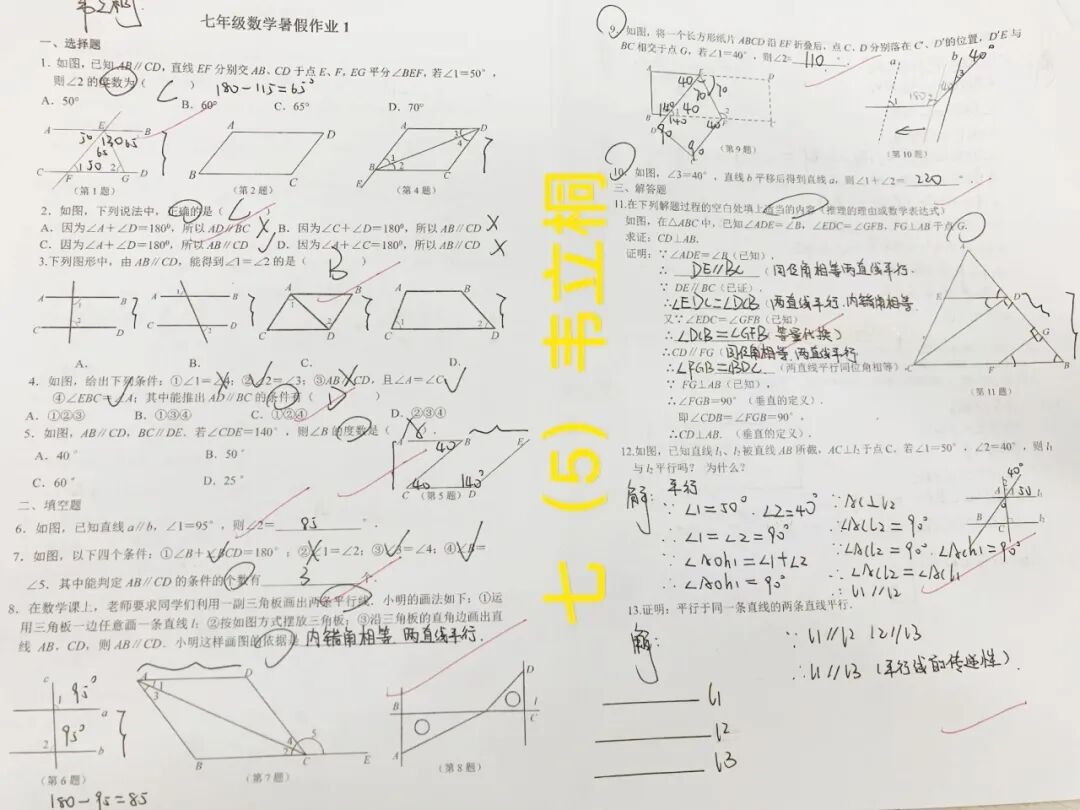 七年级数学暑假作业1
一、选择题
1. 如图，已知AB∥CD，直线EF分别交AB、CD于点E、F，EG平分∠BEF，若∠1=50°，
则∠2的度数为（ C ）
180-115=65°
A．50° B．60° C．65° D．70°
（第1题） （第2题） （第4题）
2．如图，下列说法中，正确的是（ C ）
A．因为∠A+∠D=180°，所以AD∥BC X B．因为∠C+∠D=180°，所以AB∥CD X
C．因为∠A+∠D=180°，所以AB∥CD D．因为∠A+∠C=180°，所以AB∥CD X
3.下列图形中，由AB∥CD，能得到∠1=∠2的是（ B ）
A． B． C． D．
4．如图，给出下列条件：①∠1=∠4；②∠2=∠3；③AB∥CD，且∠A=∠C；
④∠EBC=∠A；其中能推出AD∥BC的条件有（ D ）
A．①②③ B．①③④ C．①②④ D．②③④
5．如图，AB∥CD，BC∥DE．若∠CDE=140°，则∠B的度数是（ A ）．
A．40° B．50°
C．60° D．25°
（第5题）
二、填空题
6．如图，已知直线a∥b，∠1=95°，则∠2= 85 °．
7．如图，以下四个条件：①∠B+∠BCD=180°；②∠1=∠2；③∠3=∠4；④∠B=
∠5．其中能判定AB∥CD的条件的个数有 3 个．
8．在数学课上，老师要求同学们利用一副三角板画出两条平行线．小明的画法如下：①运
用三角板一边任意画一条直线l；②按如图方式摆放三角板；③沿三角板的直角边画出直
线AB，CD，则AB∥CD．小明这样画图的依据是 内错角相等，两直线平行．
（第6题） （第7题） （第8题）
180-95=85
9．如图，将一个长方形纸片ABCD沿EF折叠后，点C、D分别落在C′、D′的位置，D′E与
BC相交于点G，若∠1=40°，则∠2= 110 °．
（第9题） （第10题）
10．如图，∠3=40°，直线b平移后得到直线a，则∠1+∠2= 220 °．
三、解答题
11.在下列解题过程的空白处填上适当的内容（推理的理由或数学表达式）
如图，在△ABC中，已知∠ADE=∠B，∠EDC=∠GFB，FG⊥AB于点G．
求证：CD⊥AB．
证明：∵∠ADE=∠B（已知），
∴ DE∥BC （同位角相等两直线平行．
∵ DE∥BC（已证）．
∴∠EDC=∠DCB（两直线平行，内错角相等
又∵∠EDC=∠GFB（已知）
∴∠DCB=∠GFB 等量代换）
∴CD∥FG（同位角相等，两直线平行
∴∠FGB=∠BDC （两直线平行同位角相等）
∵ FG⊥AB（已知），
∴∠FGB=90°（垂直的定义）．
即∠CDB=∠FGB=90°，
∴CD⊥AB．（垂直的定义）．
（第11题）
12.如图，已知直线l₁、l₂被直线AB所截，AC⊥l₂于点C．若∠1=50°，∠2=40°，则l₁
与l₂平行吗？ 为什么？
解：平行
∵∠1=50°．∠2=40° ∵AC⊥l2
∴∠1=∠2=90° ∴∠ACl2=90°
∵∠AOh1=∠1+∠2 ∵∠ACl2=90°．∠ACh1=90°
∴∠AOh1=90° ∴∠ACl2=∠ACh1
∴l1∥l2
13.证明：平行于同一条直线的两条直线平行．
解： ∵l1∥l2 l2∥l3
∴l1∥l3（平行线的传递性）．
l1
l2
l3
七（5）韦立桐